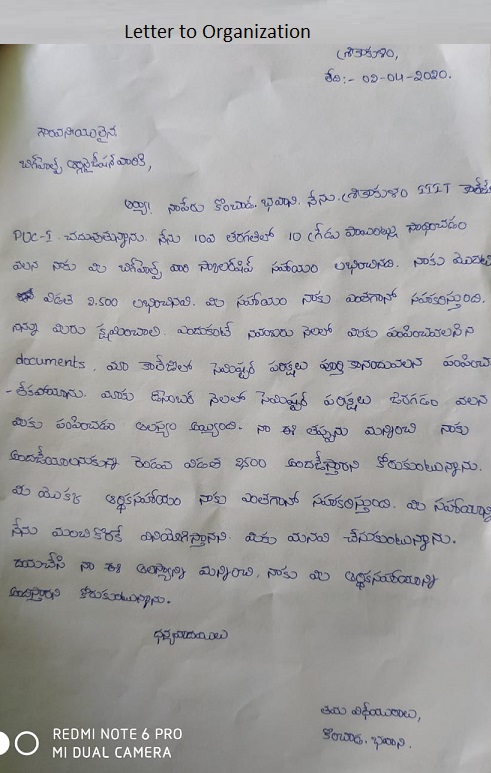 Letter to Organization
శ్రీకాకుళం,
తేది:- 02-04-2020.
గౌరవనీయులైన
బిగ్‌హెల్ప్ ఆర్గనైజేషన్ వారికి,
అయ్యా! నాపేరు కొంచాడ. భవాని. నేను శ్రీకాకుళం IIIT కాలేజి
PUC-I చదువుతున్నాను. నేను 10వ తరగతిలో 10 గ్రేడు పాయింట్లు సాధించడం
వలన నాకు మీ బిగ్‌హెల్ప్ వారి స్కాలర్‌షిప్ సహాయం లభించినది. నాకు మొదటి
విడత 2,500 లభించినవి. మీ సహాయం నాకు ఎంతగానో సహకరిస్తుంది.
నన్ను మీరు క్షమించాలి. ఎందుకంటే నవంబరు నెలలో మీకు పంపించవలసిన
documents, మా కాలేజిలో సెమిష్టర్ పరీక్షలు పూర్తి కానందువలన పంపించ
- లేకపోయాను. మాకు డిసెంబర్ నెలలో సెమిష్టర్ పరీక్షలు జరగడం వలన
మీకు పంపించడం ఆలస్యం అయ్యింది. నా ఈ తప్పును మన్నించి నాకు
అందజేయాలనుకున్న రెండవ విడత 2500 అందజేస్తారని కోరుకుంటున్నాను.
మీ యొక్క ఆర్థికసహాయం నాకు ఎంతగానో సహకరిస్తుంది. మీ సహాయాన్ని
నేను మంచి కొరకే వినియోగిస్తానని మీకు మనవి చేసుకుంటున్నాను.
దయచేసి నా ఈ ఆలస్యాన్ని మన్నించి, నాకు మీ ఆర్థికసహాయాన్ని
అందిస్తారని కోరుకుంటున్నాను.
ధన్యవాదములు
తమ విధేయురాలు,
కొంచాడ. భవాని.
REDMI NOTE 6 PRO
MI DUAL CAMERA